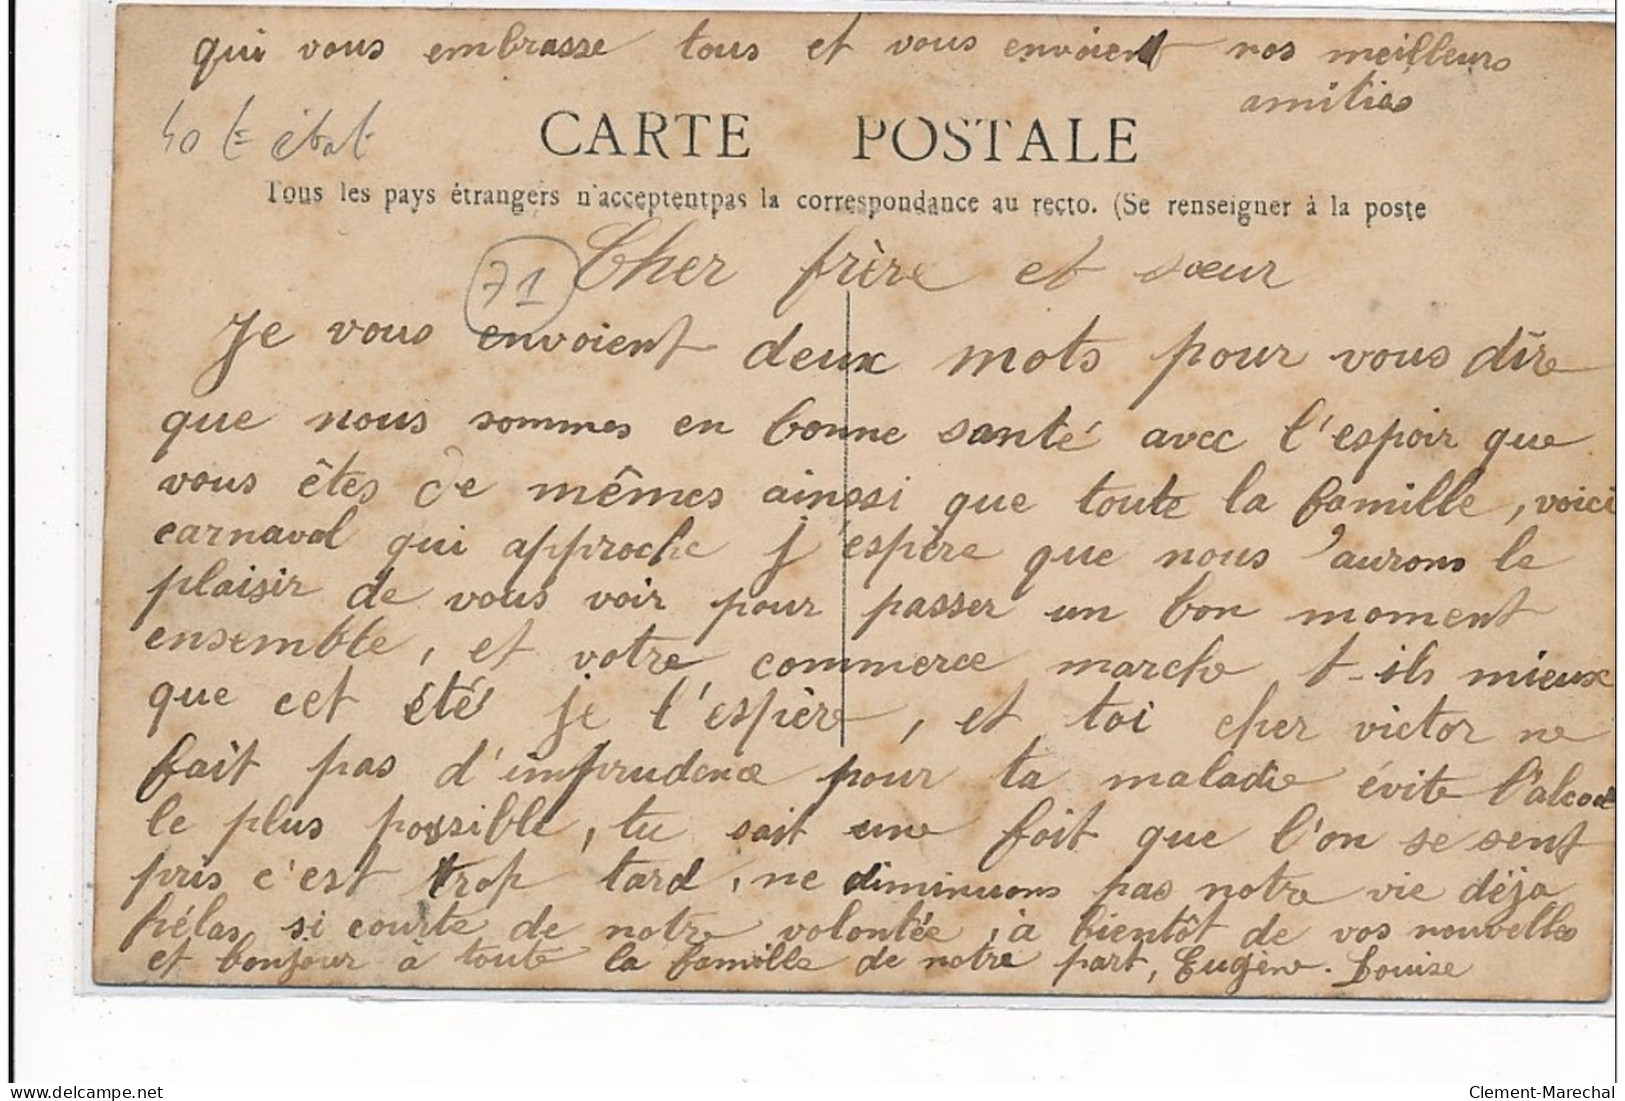 qui vous embrasse tous et vous envoient nos meilleurs
amitiés
état
CARTE POSTALE
Tous les pays étrangers n'acceptentpas la correspondance au recto. (Se renseigner à la poste
71
Cher frère et sœur
Je vous envoient deux mots pour vous dire
que nous sommes en bonne santé avec l'espoir que
vous êtes de mêmes ainssi que toute la famille, voici
carnaval qui approche j'espère que nous 'aurons le
plaisir de vous voir pour passer un bon moment
ensemble, et votre commerce marche t-ils mieux
que cet été je l'espère, et toi cher victor ne
fait pas d'imprudence pour ta maladie évite l'alcool
le plus possible, tu sait une foit que l'on se sent
pris c'est trop tard, ne diminuons pas notre vie déja
hélas si courte de notre volontée, à bientôt de vos nouvelles
et bonjour à toute la famille de notre part, Eugène. Louise
delcampe.net
Clement-Marechal